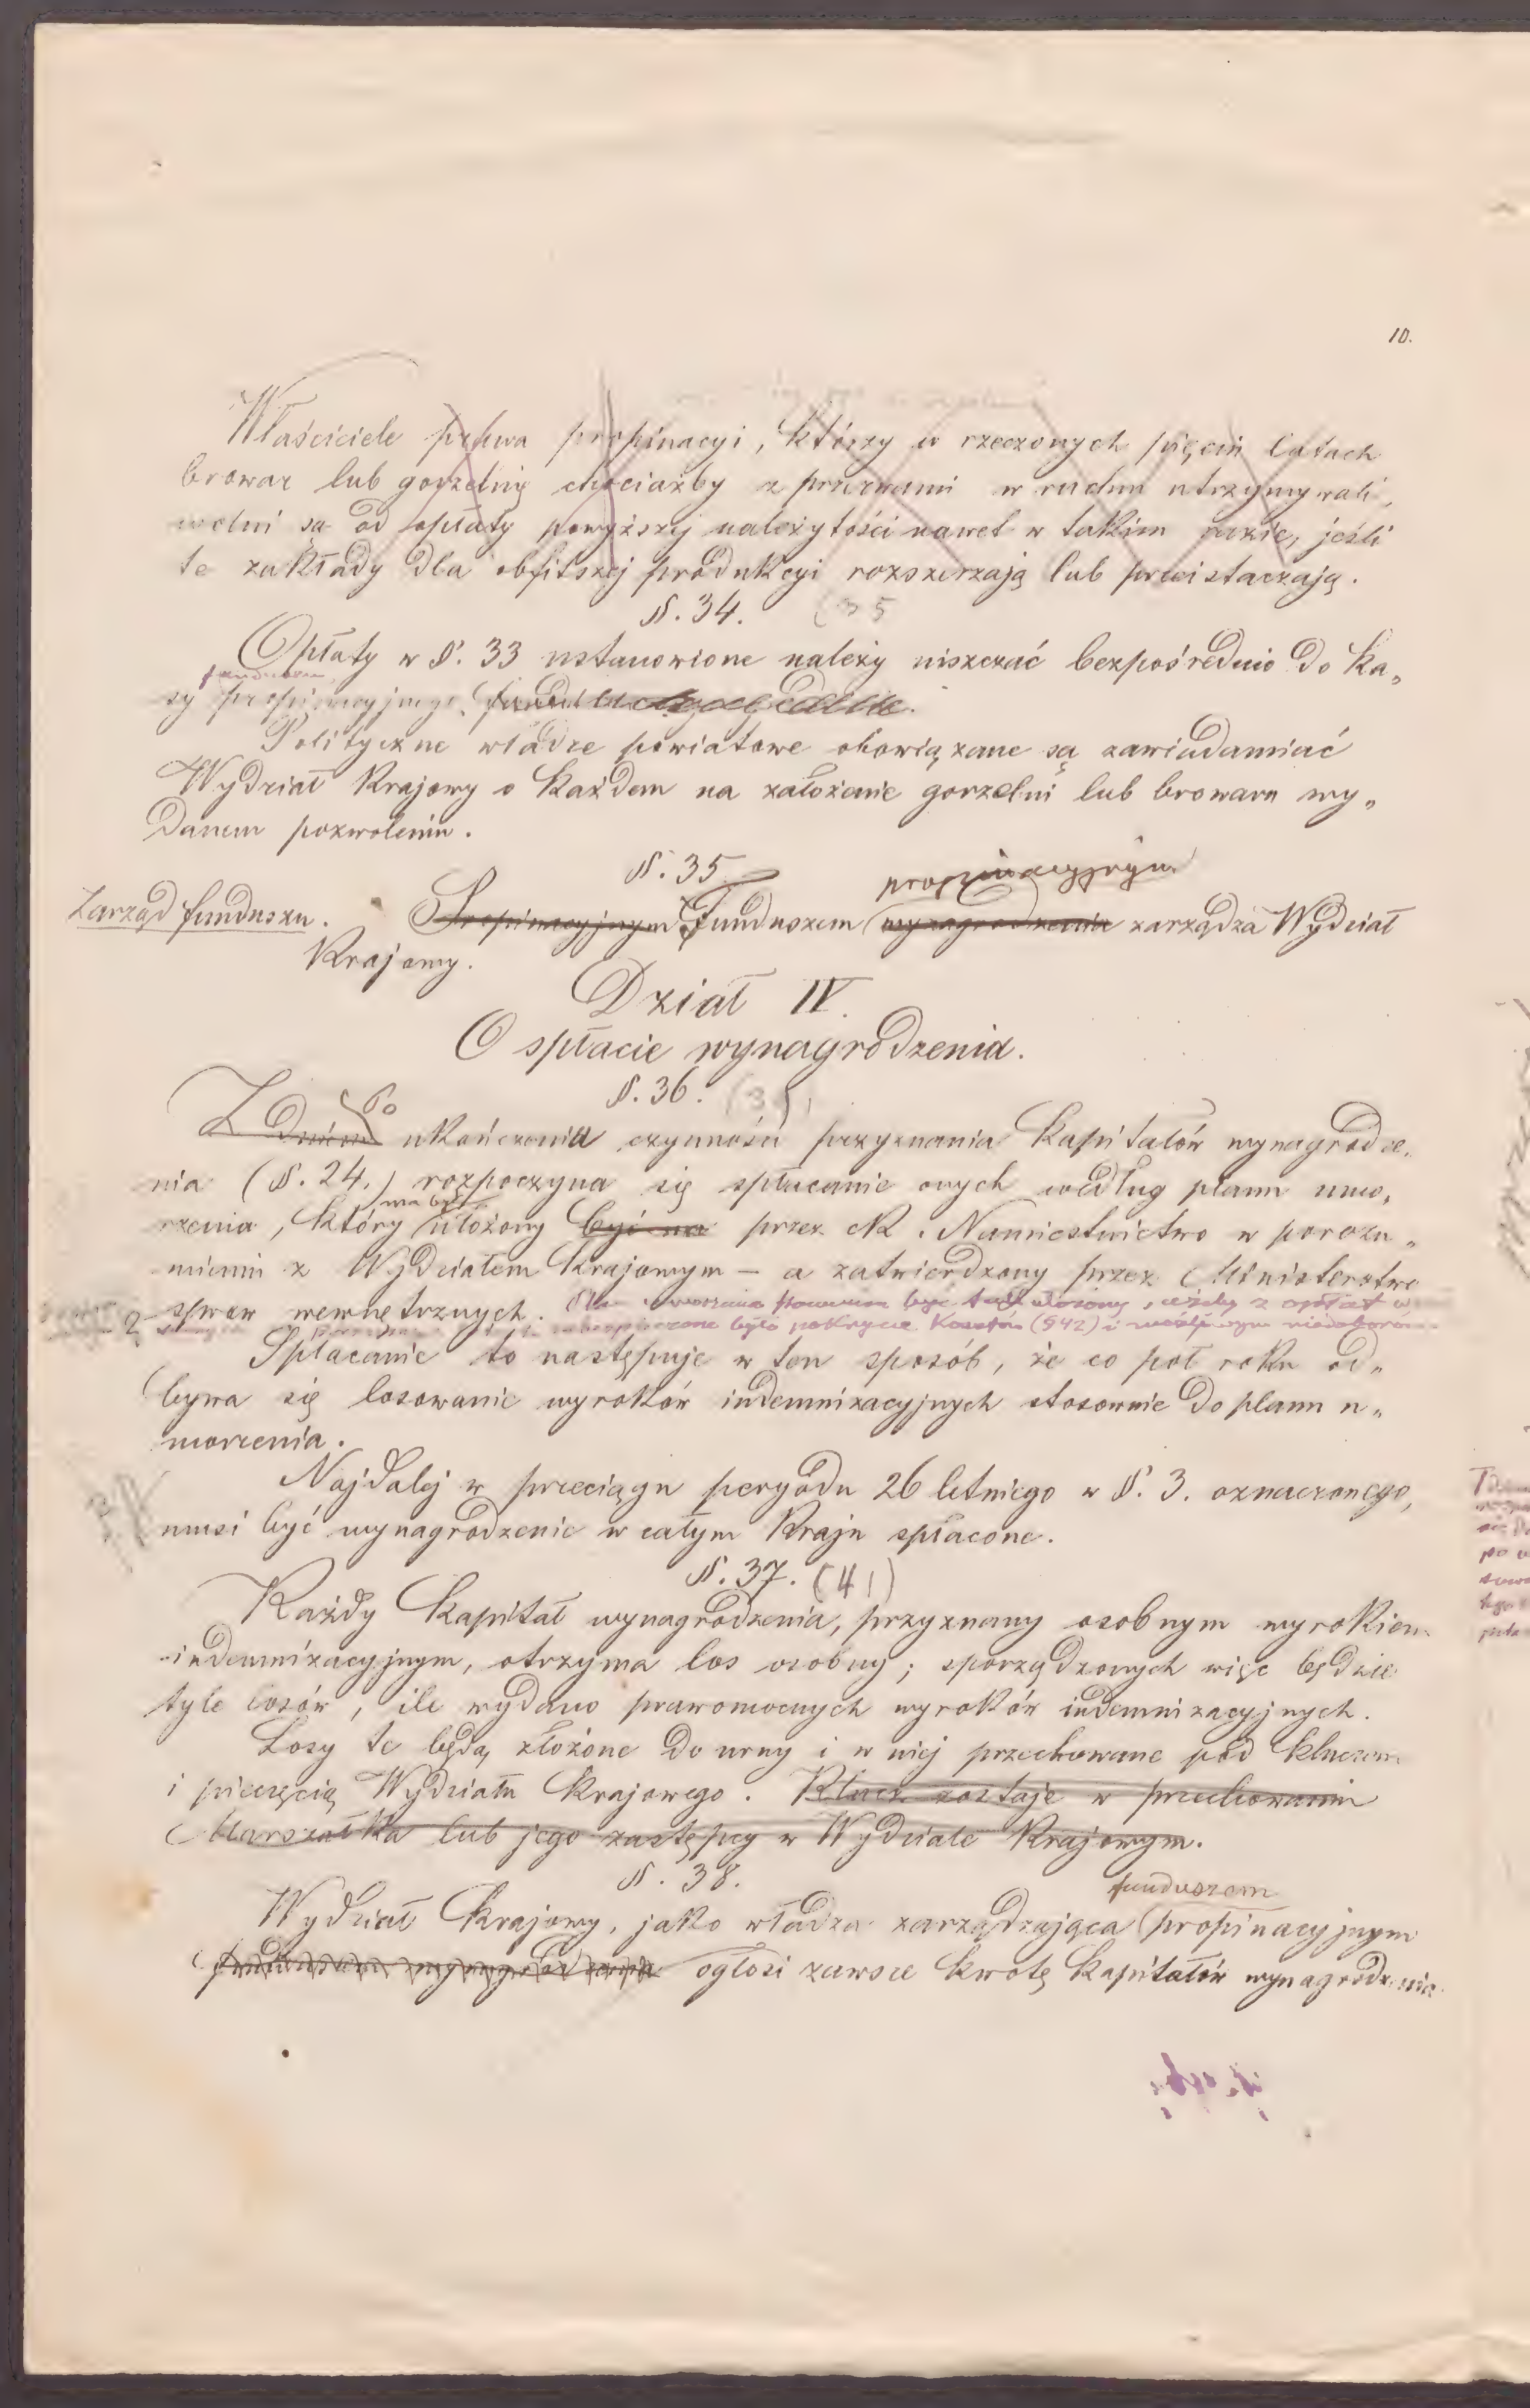 10.
Właściciele prawa propinacyi, którzy w rzeczonych pięciu latach
browar lub gorzelnię chociażby z przerwami w ruchu utrzymywali,
wolni są od opłaty powyższej należytości nawet w takim razie, jeśli
te zakłady dla obfitszej produkcyi rozszerzają lub przeistaczają.
§. 34. (35
Opłaty w §. 33 ustanowione należy uiszczać bezpośrednio do ka„
funduszu
sy propinacyjnego
Polityczne władze powiatowe obowiązane są zawiadamiać
Wydział Krajowy o każdem na założenie gorzelni lub browaru wy„
danem pozwoleniu.
§. 35
propinacyjnym
Zarząd funduszu. Propinacyjnym Funduszem wynagrodzenia zarządza Wydział
Krajowy.
Dział IV.
O spłacie wynagrodzenia.
§. 36.
Po
Z dniem ukończenia czynności przyznania kapitałów wynagrodze„
nia (§. 24.) rozpoczyna się spłacanie onych według planu umo„
ma być
rzenia, który ułożony być ma przez ck. Namiestnictwo w porozu„
mieniu z Wydziałem krajowym – a zatwierdzony przez Ministerstwo
spraw wewnętrznych. Plan umorzenia powinien być tak ułożony, ażeby z opłat
zabezpieczone było pokrycie kosztów (§42) i możliwym niedoborom
Spłacanie to następuje w ten sposób, że co pół roku od„
bywa się losowanie wyroków indemnizacyjnych stosownie do planu u„
morzenia.
Najdalej w przeciągu peryodu 26 letniego w §. 3. oznaczonego,
musi być wynagrodzenie w całym kraju spłacone.
§. 37. (41)
Każdy kapitał wynagrodzenia, przyznany osobnym wyrokiem
indemnizacyjnym, otrzyma los osobny; sporządzonych więc będzie
tyle losów, ile wydano prawomocnych wyroków indemnizacyjnych.
Losy te będą złożone do urny i w niej przechowane pod kluczem
i pieczęcią Wydziału krajowego. Klucz zostaje w przechowaniu
Marszałka lub jego zastępcy w Wydziale krajowym.
§. 38.
funduszem
Wydział krajowy, jako władza zarządzająca propinacyjnym
funduszem wynagrodzenia ogłosi zawsze kwotę kapitałów wynagrodzenia